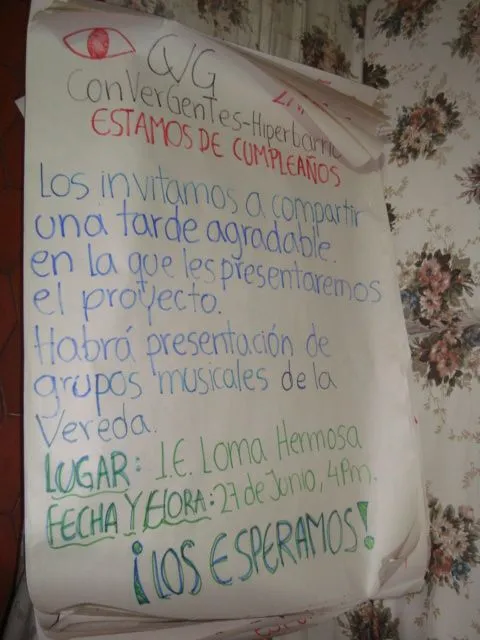 ConVerGentes-Hiperbarrio
ESTAMOS DE CUMPLEAÑOS
Los invitamos a compartir
una tarde agradable.
en la que les presentaremos
el proyecto.
Habrá presentación de
grupos musicales de la
Vereda.
LUGAR: I.E. Loma Hermosa
FECHA Y HORA: 27 de Junio, 4Pm.
¡LOS ESPERAMOS!